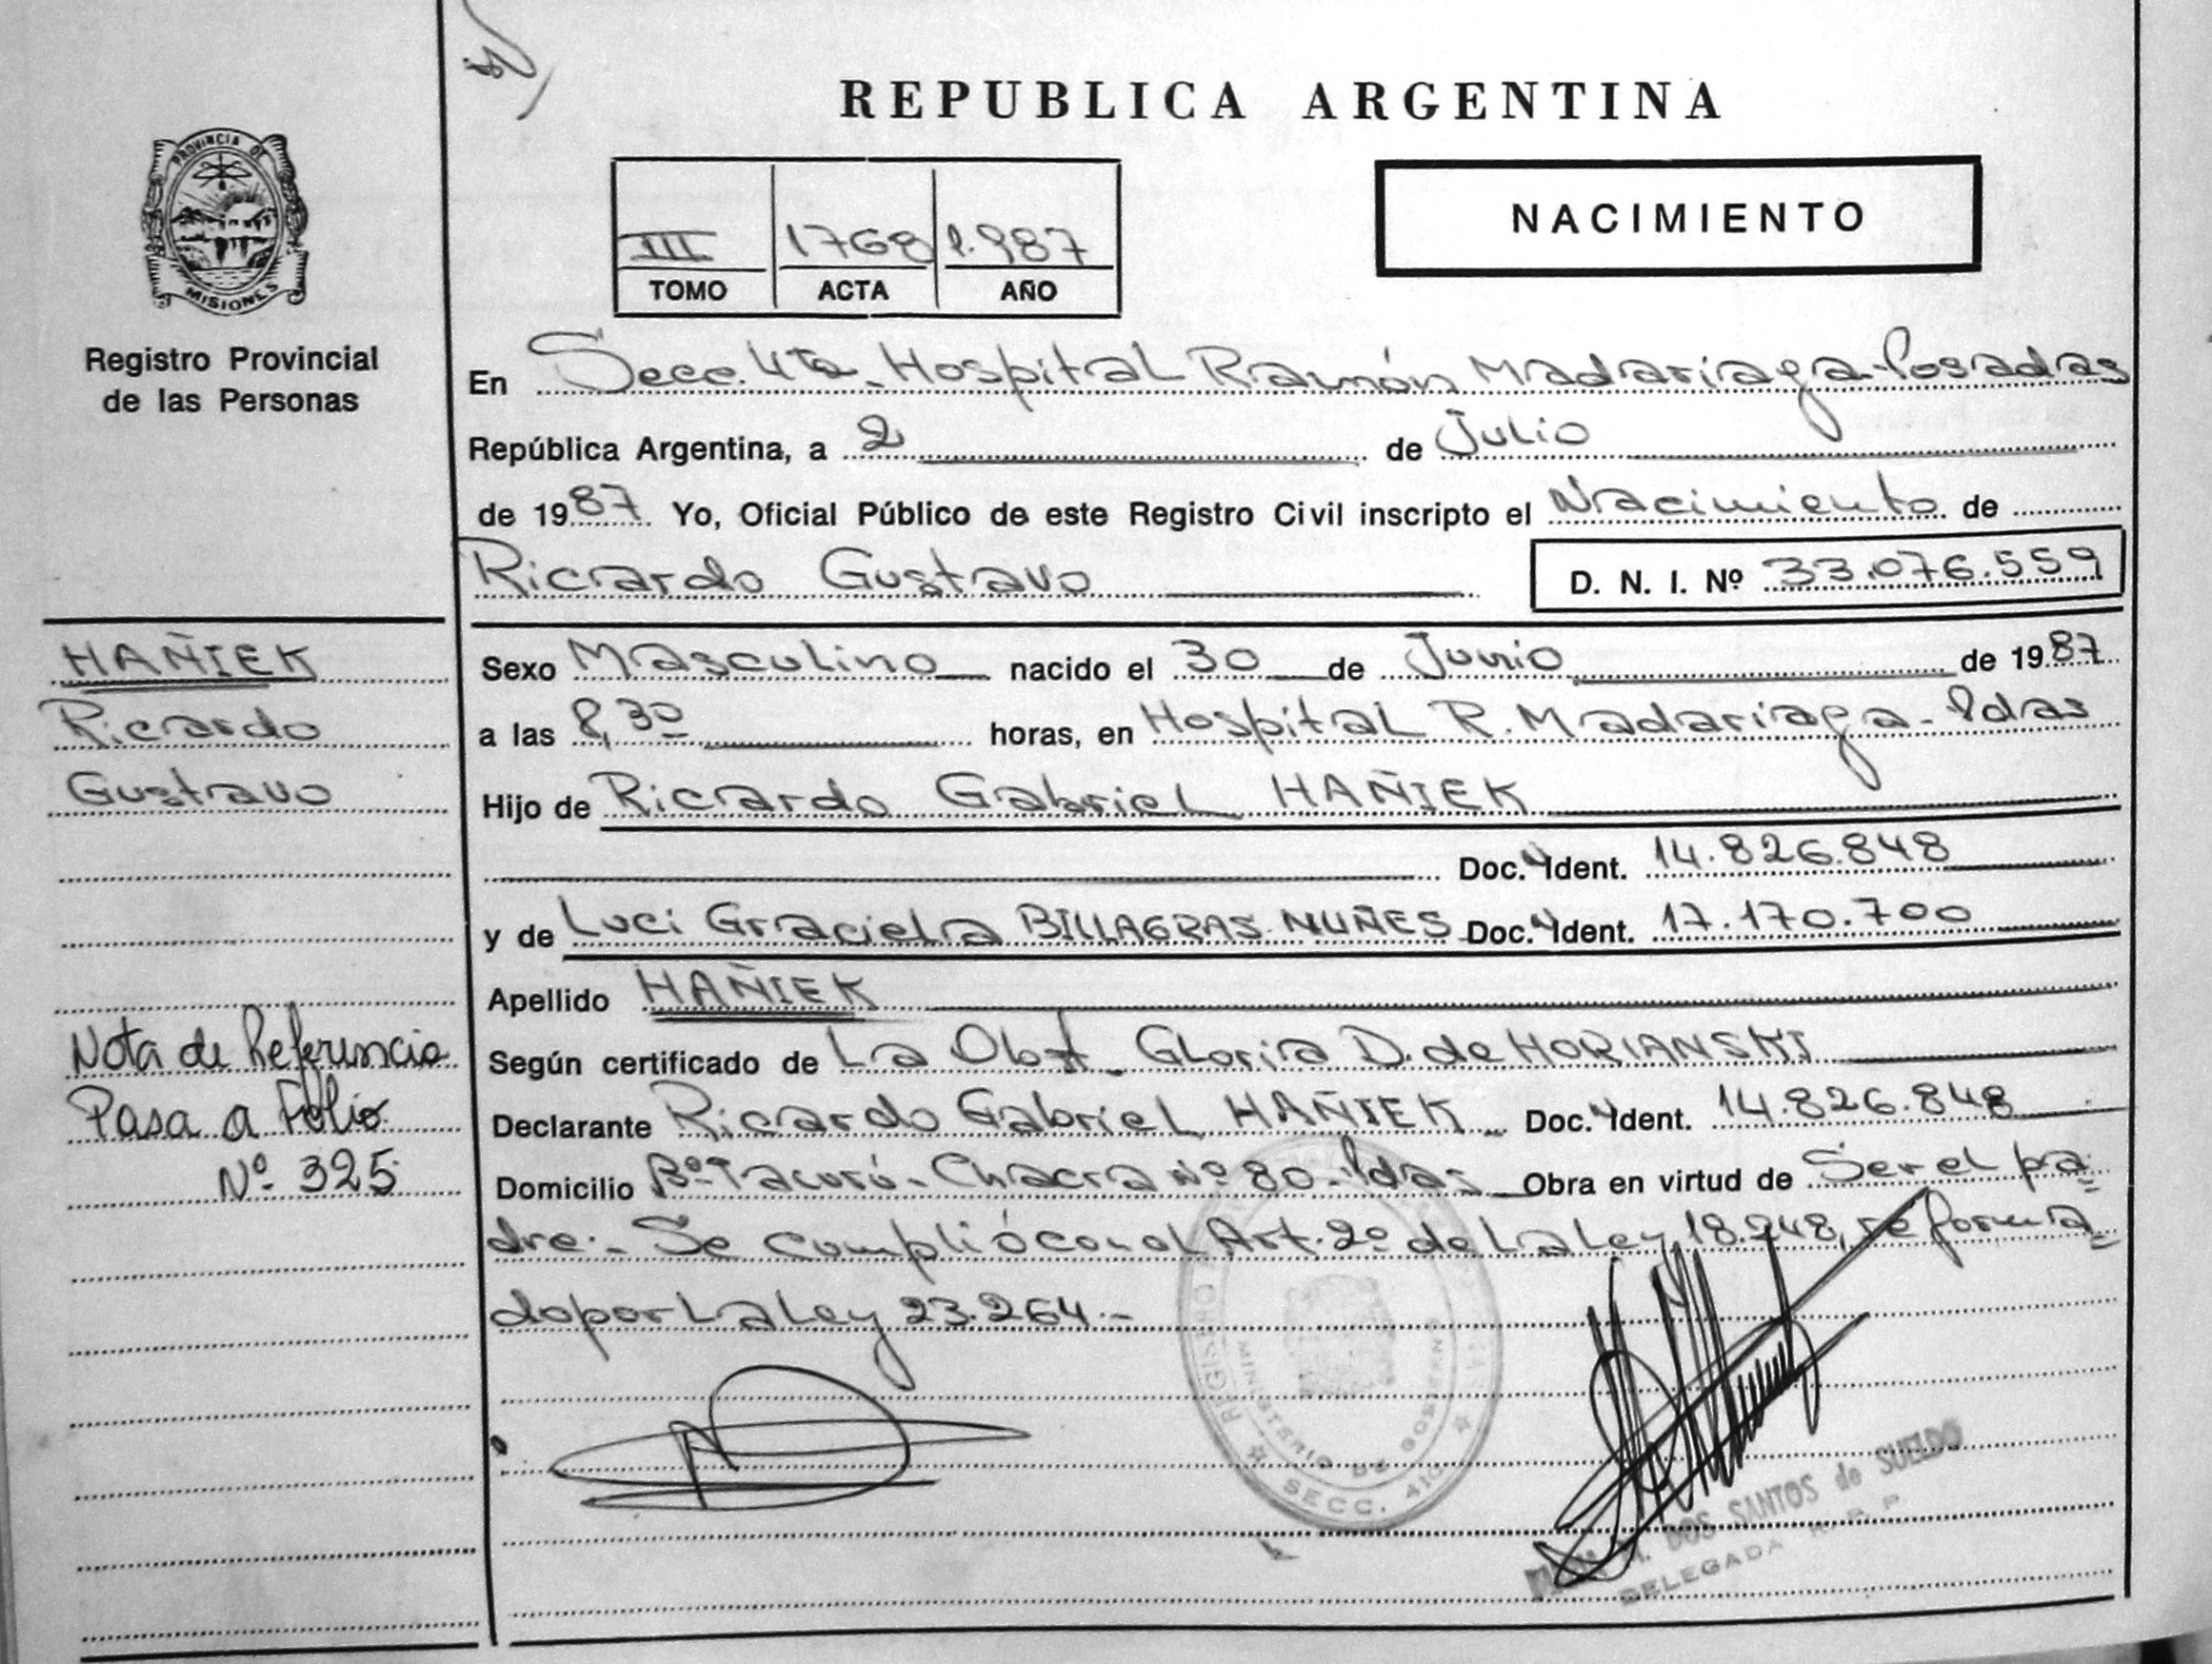 REPUBLICA ARGENTINA
PROVINCIA DE
MISIONES
Registro Provincial
de las Personas
III 1768 1.987
TOMO ACTA AÑO
NACIMIENTO
En Secc. 4ta. Hospital Ramón Madariaga-Posadas
República Argentina, a 2 de Julio
de 1987 Yo, Oficial Público de este Registro Civil inscripto el Nacimiento de
Ricardo Gustavo D. N. I. Nº 33.076.559
HAÑIEK
Ricardo
Gustavo
Nota de Referencia
Pasa a Folio
Nº 325
Sexo Masculino nacido el 30 de Junio de 1987
a las 8,30 horas, en Hospital R. Madariaga-Pdas
Hijo de Ricardo Gabriel HAÑIEK
Doc. Ident. 14.826.848
y de Luci Graciela BILLAGRAS NUÑES Doc. Ident. 17.170.700
Apellido HAÑIEK
Según certificado de La Obst. Gloria D. de HORIANSKI
Declarante Ricardo Gabriel HAÑIEK Doc. Ident. 14.826.848
Domicilio Bº Tacurú - Chacra Nº 80 - Pdas Obra en virtud de Ser el pa=
dre.- Se cumplió con el Art. 2º de La Ley 18.248, reforma=
do por La Ley 23.264.-
REGISTRO
MINISTERIO DE GOBIERNO
SECC. 4ta
M. DOS SANTOS de SUELDO
DELEGADA R. P. P.